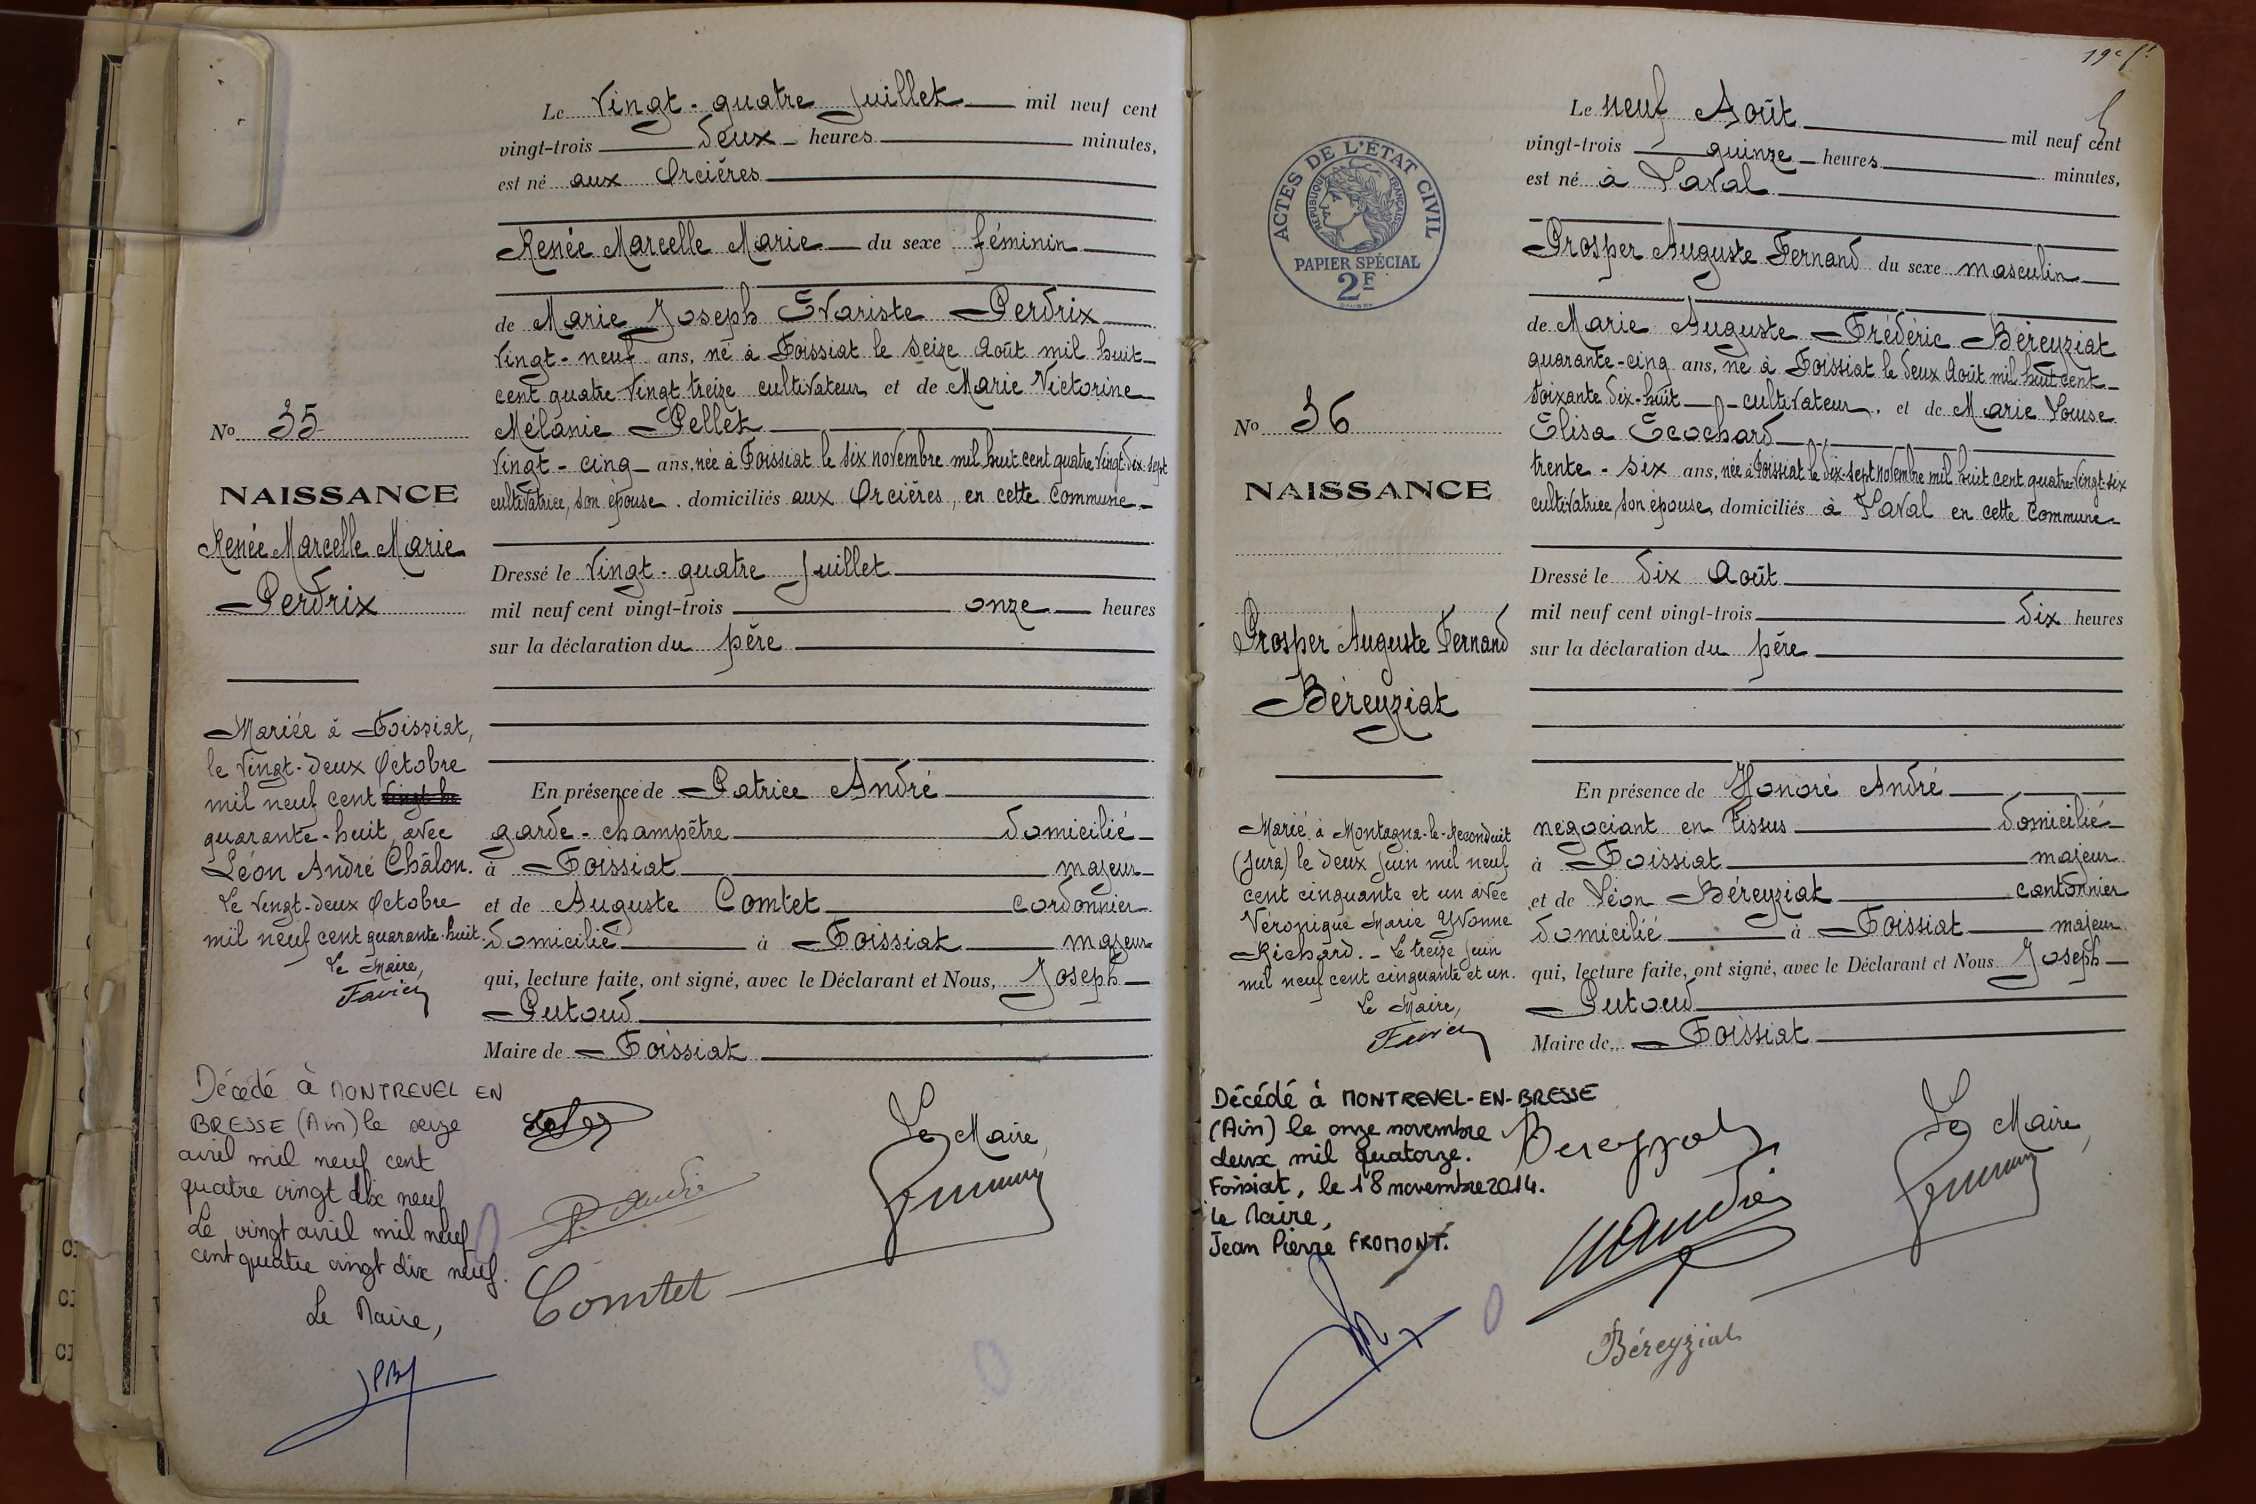 Le Vingt-quatre Juillet mil neuf cent
vingt-trois deux heures minutes,
est né aux Orcières
Renée Marcelle Marie du sexe féminin
de Marie Joseph Evariste Perdrix
Vingt-neuf ans, né à Foissiat le seize Août mil huit
cent quatre Vingt treize cultivateur et de Marie Victorine
Mélanie Pellet
Vingt-cinq ans, née à Foissiat le six novembre mil huit cent quatre Vingt-dix-sept
cultivatrice, son épouse. domiciliés aux Orcières, en cette Commune
Dressé le Vingt-quatre Juillet
mil neuf cent vingt-trois onze heures
sur la déclaration du père
En présence de Patrice André
garde-champêtre domicilié
à Foissiat majeur
et de Auguste Comtet cordonnier
domicilié à Foissiat majeur
qui, lecture faite, ont signé, avec le Déclarant et Nous, Joseph
Putoud
Maire de Foissiat
Le Maire,
P. André
Comtet
No 35
NAISSANCE
Renée Marcelle Marie
Perdrix
Mariée à Foissiat,
le Vingt-deux Octobre
mil neuf cent
quarante-huit, avec
Léon André Châlon.
Le Vingt-deux Octobre
mil neuf cent quarante-huit.
Le Maire,
Décédé à MONTREVEL EN
BRESSE (Ain) le seize
avril mil neuf cent
quatre vingt dix neuf
Le vingt avril mil neuf
cent quatre vingt dix neuf.
Le Maire,
19e f!
ACTES DE L'ÉTAT CIVIL
RÉPUBLIQUE FRANÇAISE
PAPIER SPÉCIAL
2F
Le neuf Août mil neuf cent
vingt-trois quinze heures minutes,
est né à Laval
Prosper Auguste Fernand du sexe masculin
de Marie Auguste Frédéric Béreyziat
quarante-cinq ans, né à Foissiat le deux Août mil huit cent
soixante dix-huit cultivateur, et de Marie Louise
Elisa Ecochard
trente-six ans, née à Foissiat le dix-sept novembre mil huit cent quatre-Vingt-six
cultivatrice, son épouse, domiciliés à Laval en cette Commune
Dressé le dix Août
mil neuf cent vingt-trois dix heures
sur la déclaration du père
En présence de Honoré André
négociant en tissus domicilié
à Foissiat majeur
et de Léon Béreyziat cantonnier
domicilié à Foissiat majeur
qui, lecture faite, ont signé, avec le Déclarant et Nous Joseph
Putoud
Maire de Foissiat
Le Maire,
Béreyziat
No 36
NAISSANCE
Prosper Auguste Fernand
Béreyziat
Marié à Montagna-le-Reconduit
(Jura) le deux Juin mil neuf
cent cinquante et un avec
Véronique Marie Yvonne
Richard. - Le treize Juin
mil neuf cent cinquante et un.
Le Maire,
Décédé à MONTREVEL-EN-BRESSE
(Ain) le onze novembre
deux mil quatorze.
Foissiat, le 18 novembre 2014.
Le Maire,
Jean Pierre FROMONT.